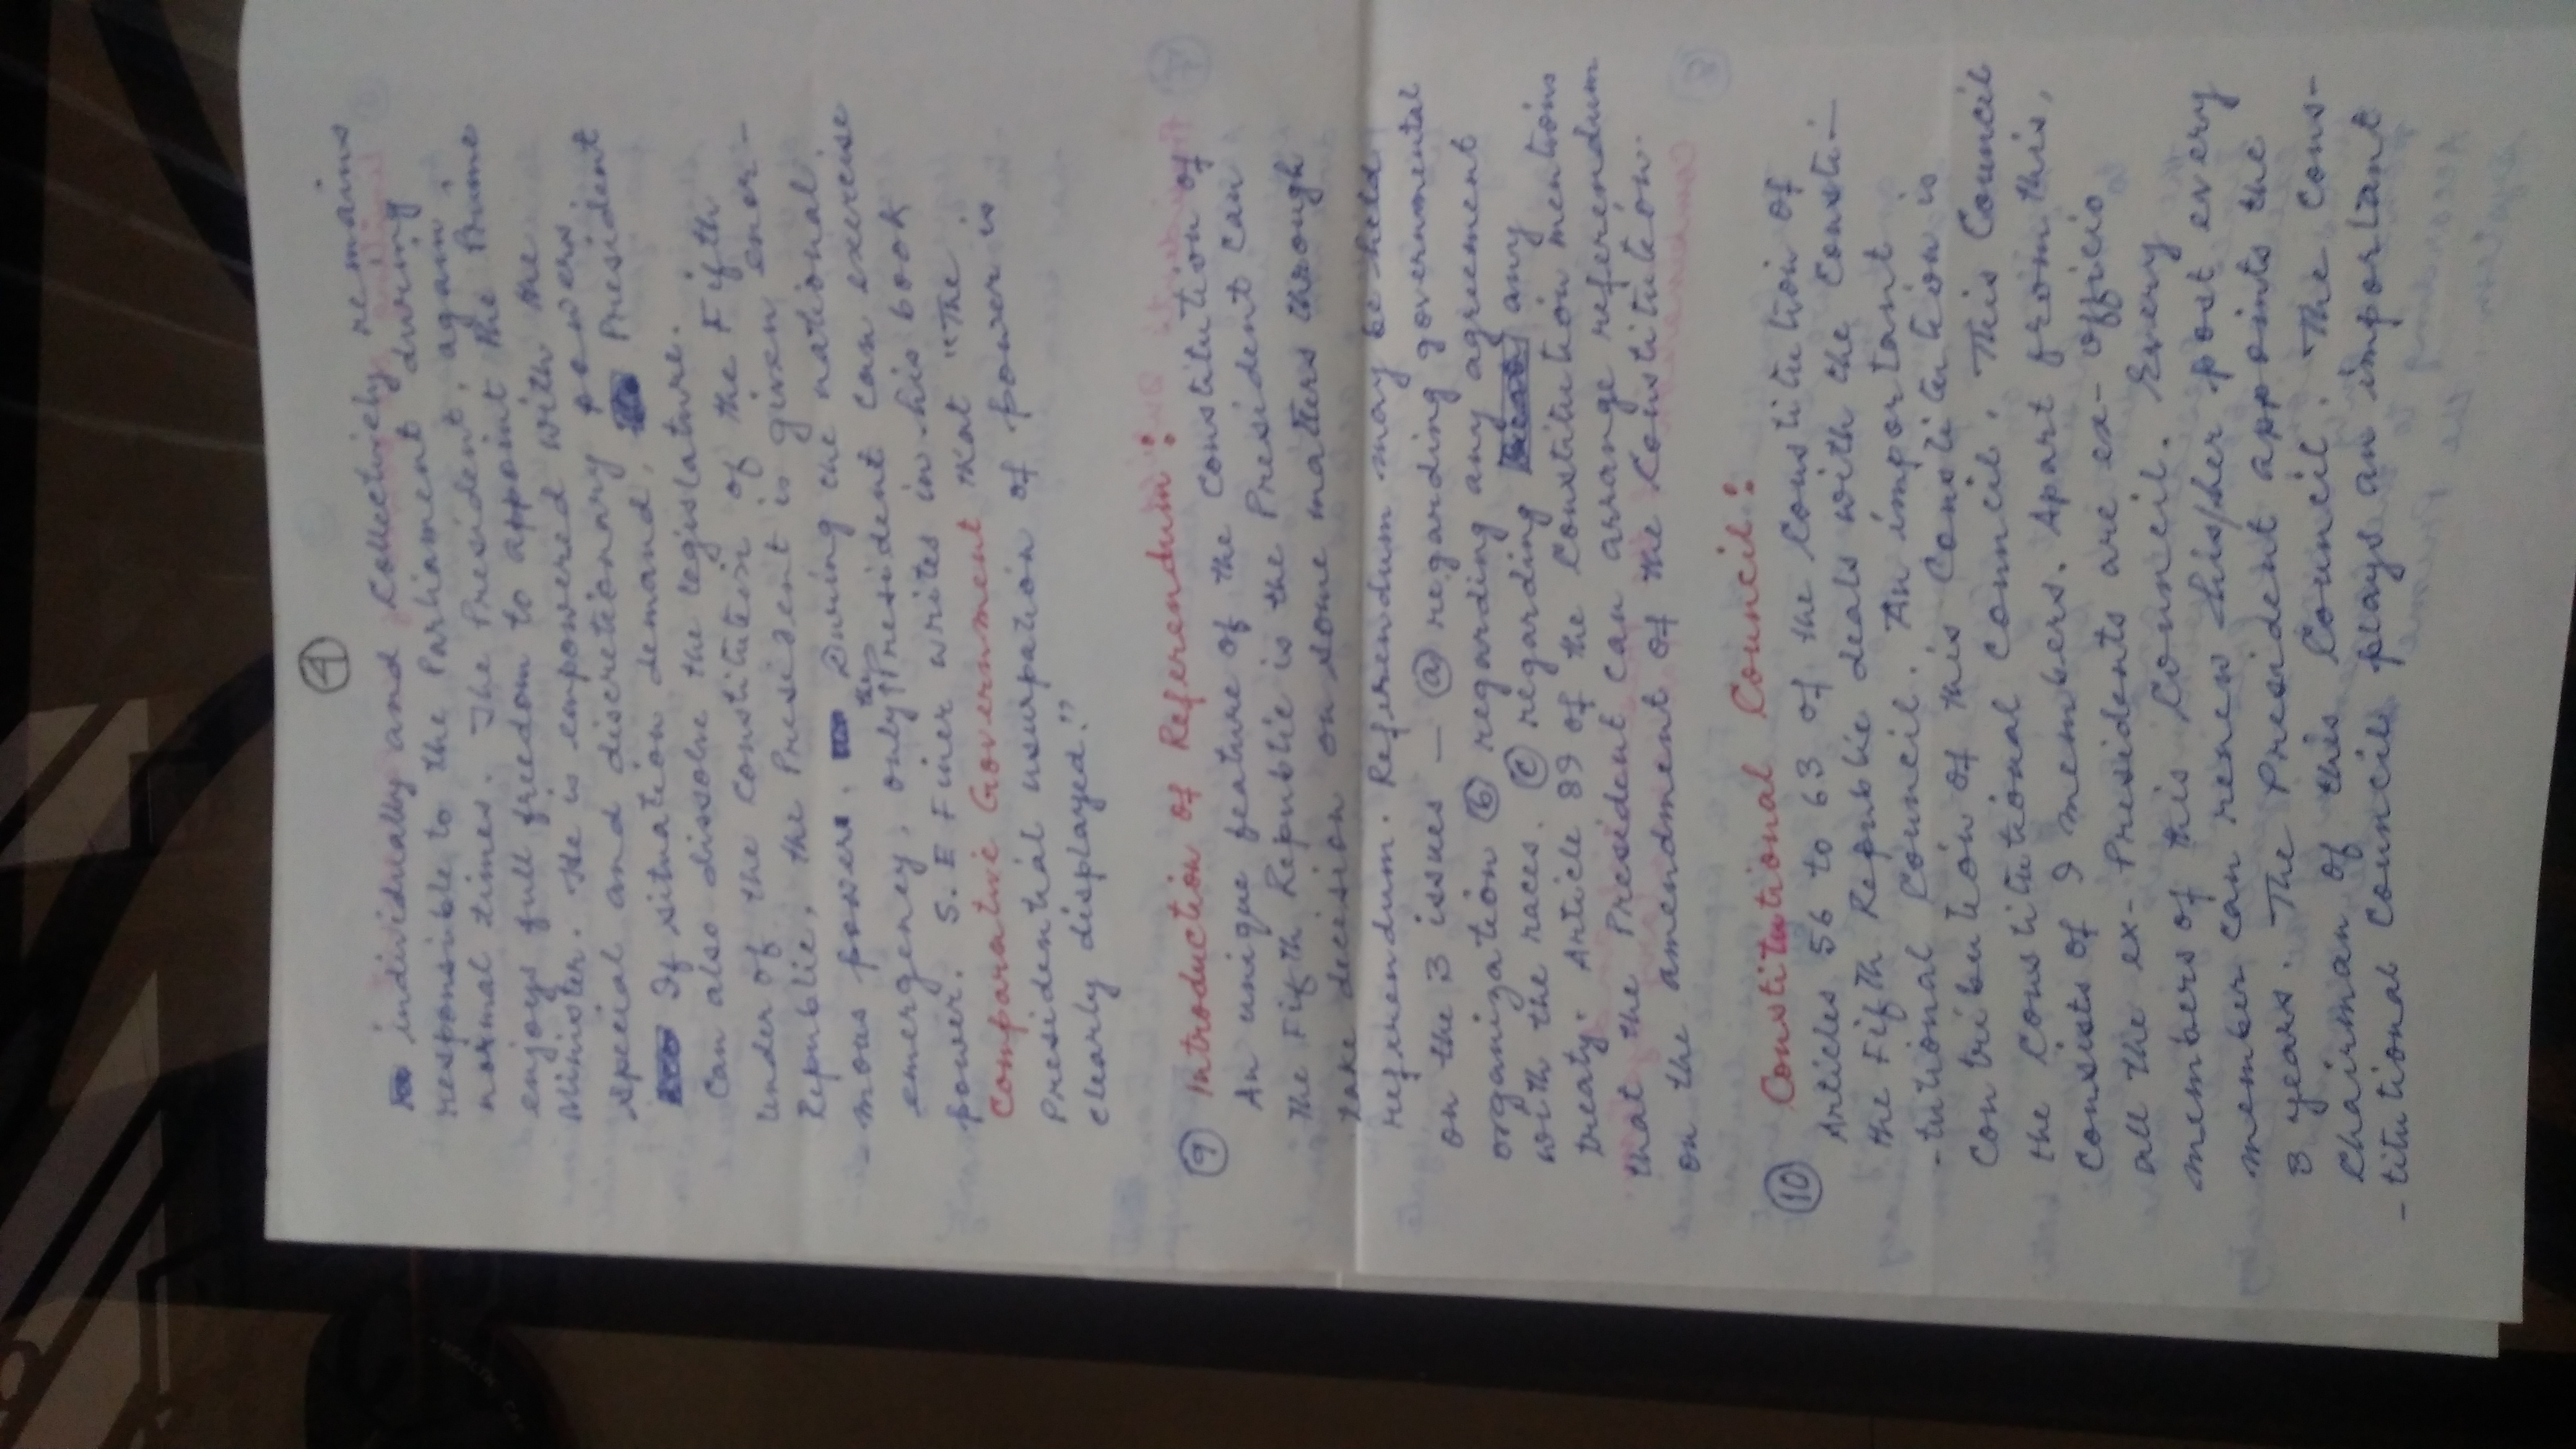 4
individually and Collectively remains
responsible to the Parliament during
normal times. The President, again,
enjoys full freedom to appoint the Prime
Minister. He is empowered with the
special and discretionary powers.
If situation demand, President
Can also dissolve the legislature.
Under of the Constitution of the Fifth
Republic, the President is given enor-
-mous powers. During the national
emergency, only the President can exercise
power. S.E Finer writes in his book
Comparative Government that "The
Presidential usurpation of power is
clearly displayed."
9 Introduction of Referendum:
An unique feature of the Constitution of
the Fifth Republic is the President can
take decision on some matters through
referendum. Referendum may be held
on the 3 issues — a regarding governmental
organization b regarding any agreement
with the races. c regarding any
treaty. Article 89 of the Constitution mentions
that the President can arrange referendum
on the amendment of the Constitution.
10 Constitutional Council:
Articles 56 to 63 of the Constitution of
the Fifth Republic deals with the Consti-
-tutional Council. An important
Contribution of this Constitution is
the Constitutional Council. This Council
Consists of 9 members. Apart from this,
all the ex-Presidents are ex-officio
members of this Council. Every
member can renew his/her post every
3 years. The President appoints the
Chairman of this Council. The Cons-
-titutional Council plays an important
HEALTHE CA